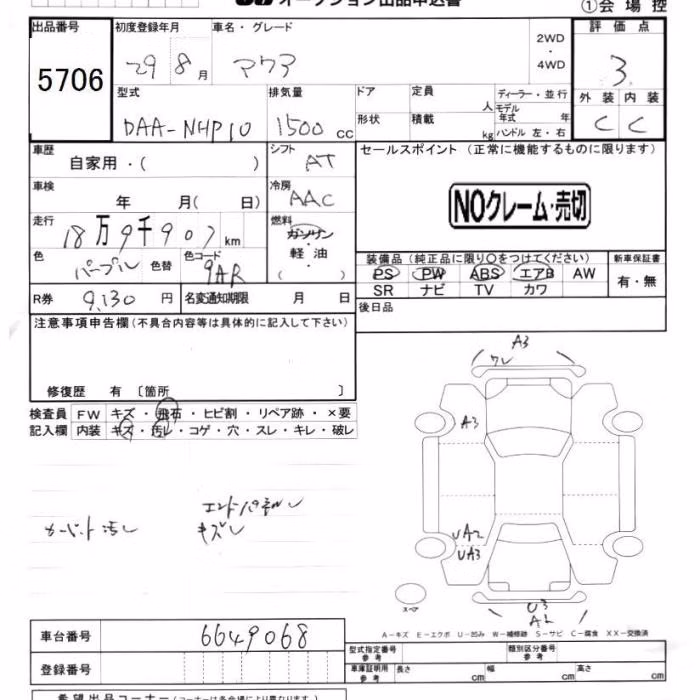 オークション出品申込書
①会場控
出品番号 5706
初度登録年月 29 8月
車名・グレード アクア
2WD・4WD
評価点 3
外装 C 内装 C
型式 DAA-NHP10
排気量 1500cc
ドア 形状
定員 人 積載 kg
ディーラー・並行
モデル年式 年
ハンドル 左・右
車歴 自家用・( )
シフト AT
セールスポイント(正常に機能するものに限ります)
車検 年 月( 日)
冷房 AAC
NOクレーム・売切
走行 18万9千907km
燃料 ガソリン 軽油 ( )
色 パープル 色替
色コード 9AR
装備品(純正品に限り○をつけてください)
PS PW ABS エアB AW
SR ナビ TV カワ
新車保証書 有・無
R券 9,130円
名変通知期限 月 日
後日品
注意事項申告欄(不具合内容等は具体的に記入して下さい)
修復歴 有〔箇所 〕
検査員 FW キズ・飛石・ヒビ割・リペア跡・×要
記入欄 内装 キズ・汚レ・コゲ・穴・スレ・キレ・破レ
A3
ワレ
A3
エンドパネル
カーペット汚レ
キズ
UA2
UA3
スペア
U3
A2
A-キズ E-エクボ U-凹み W-補修跡 S-サビ C-腐食 XX-交換済
車台番号 6649068
登録番号
型式指定番号 参考
類別区分番号 参考
車庫証明用 参考 長さ cm 幅 cm 高さ cm
希望出品コーナー(コーナーは各会場により異なります)